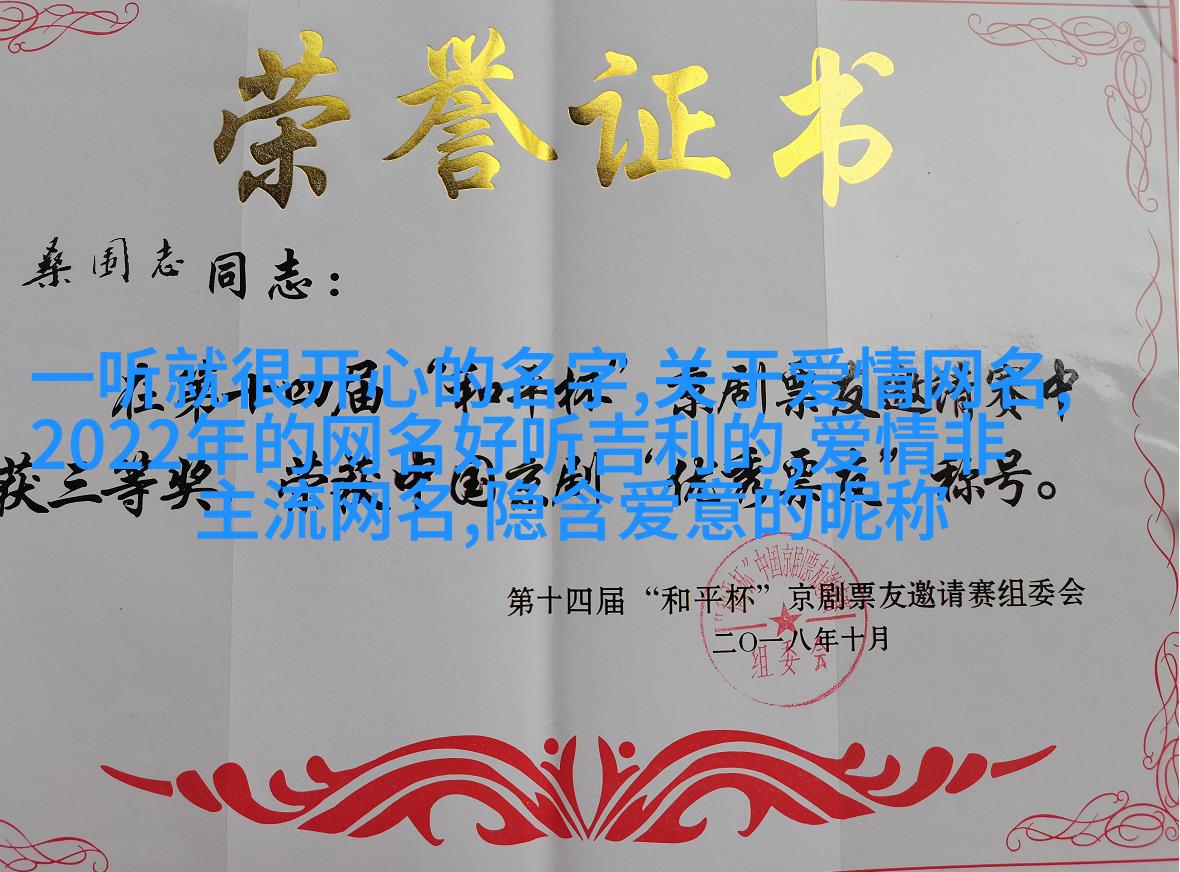 荣誉证书
桑国志 同志：
在第十四届“和平杯”京剧票友邀请赛中
获三等奖 荣获中国京剧“优秀票友”称号。
一听就很开心的名字,关于爱情网名,
2022年的网名好听吉利的,爱情非
主流网名,隐含爱意的昵称
第十四届“和平杯”京剧票友邀请赛组委会
二〇一八年十月
组委会